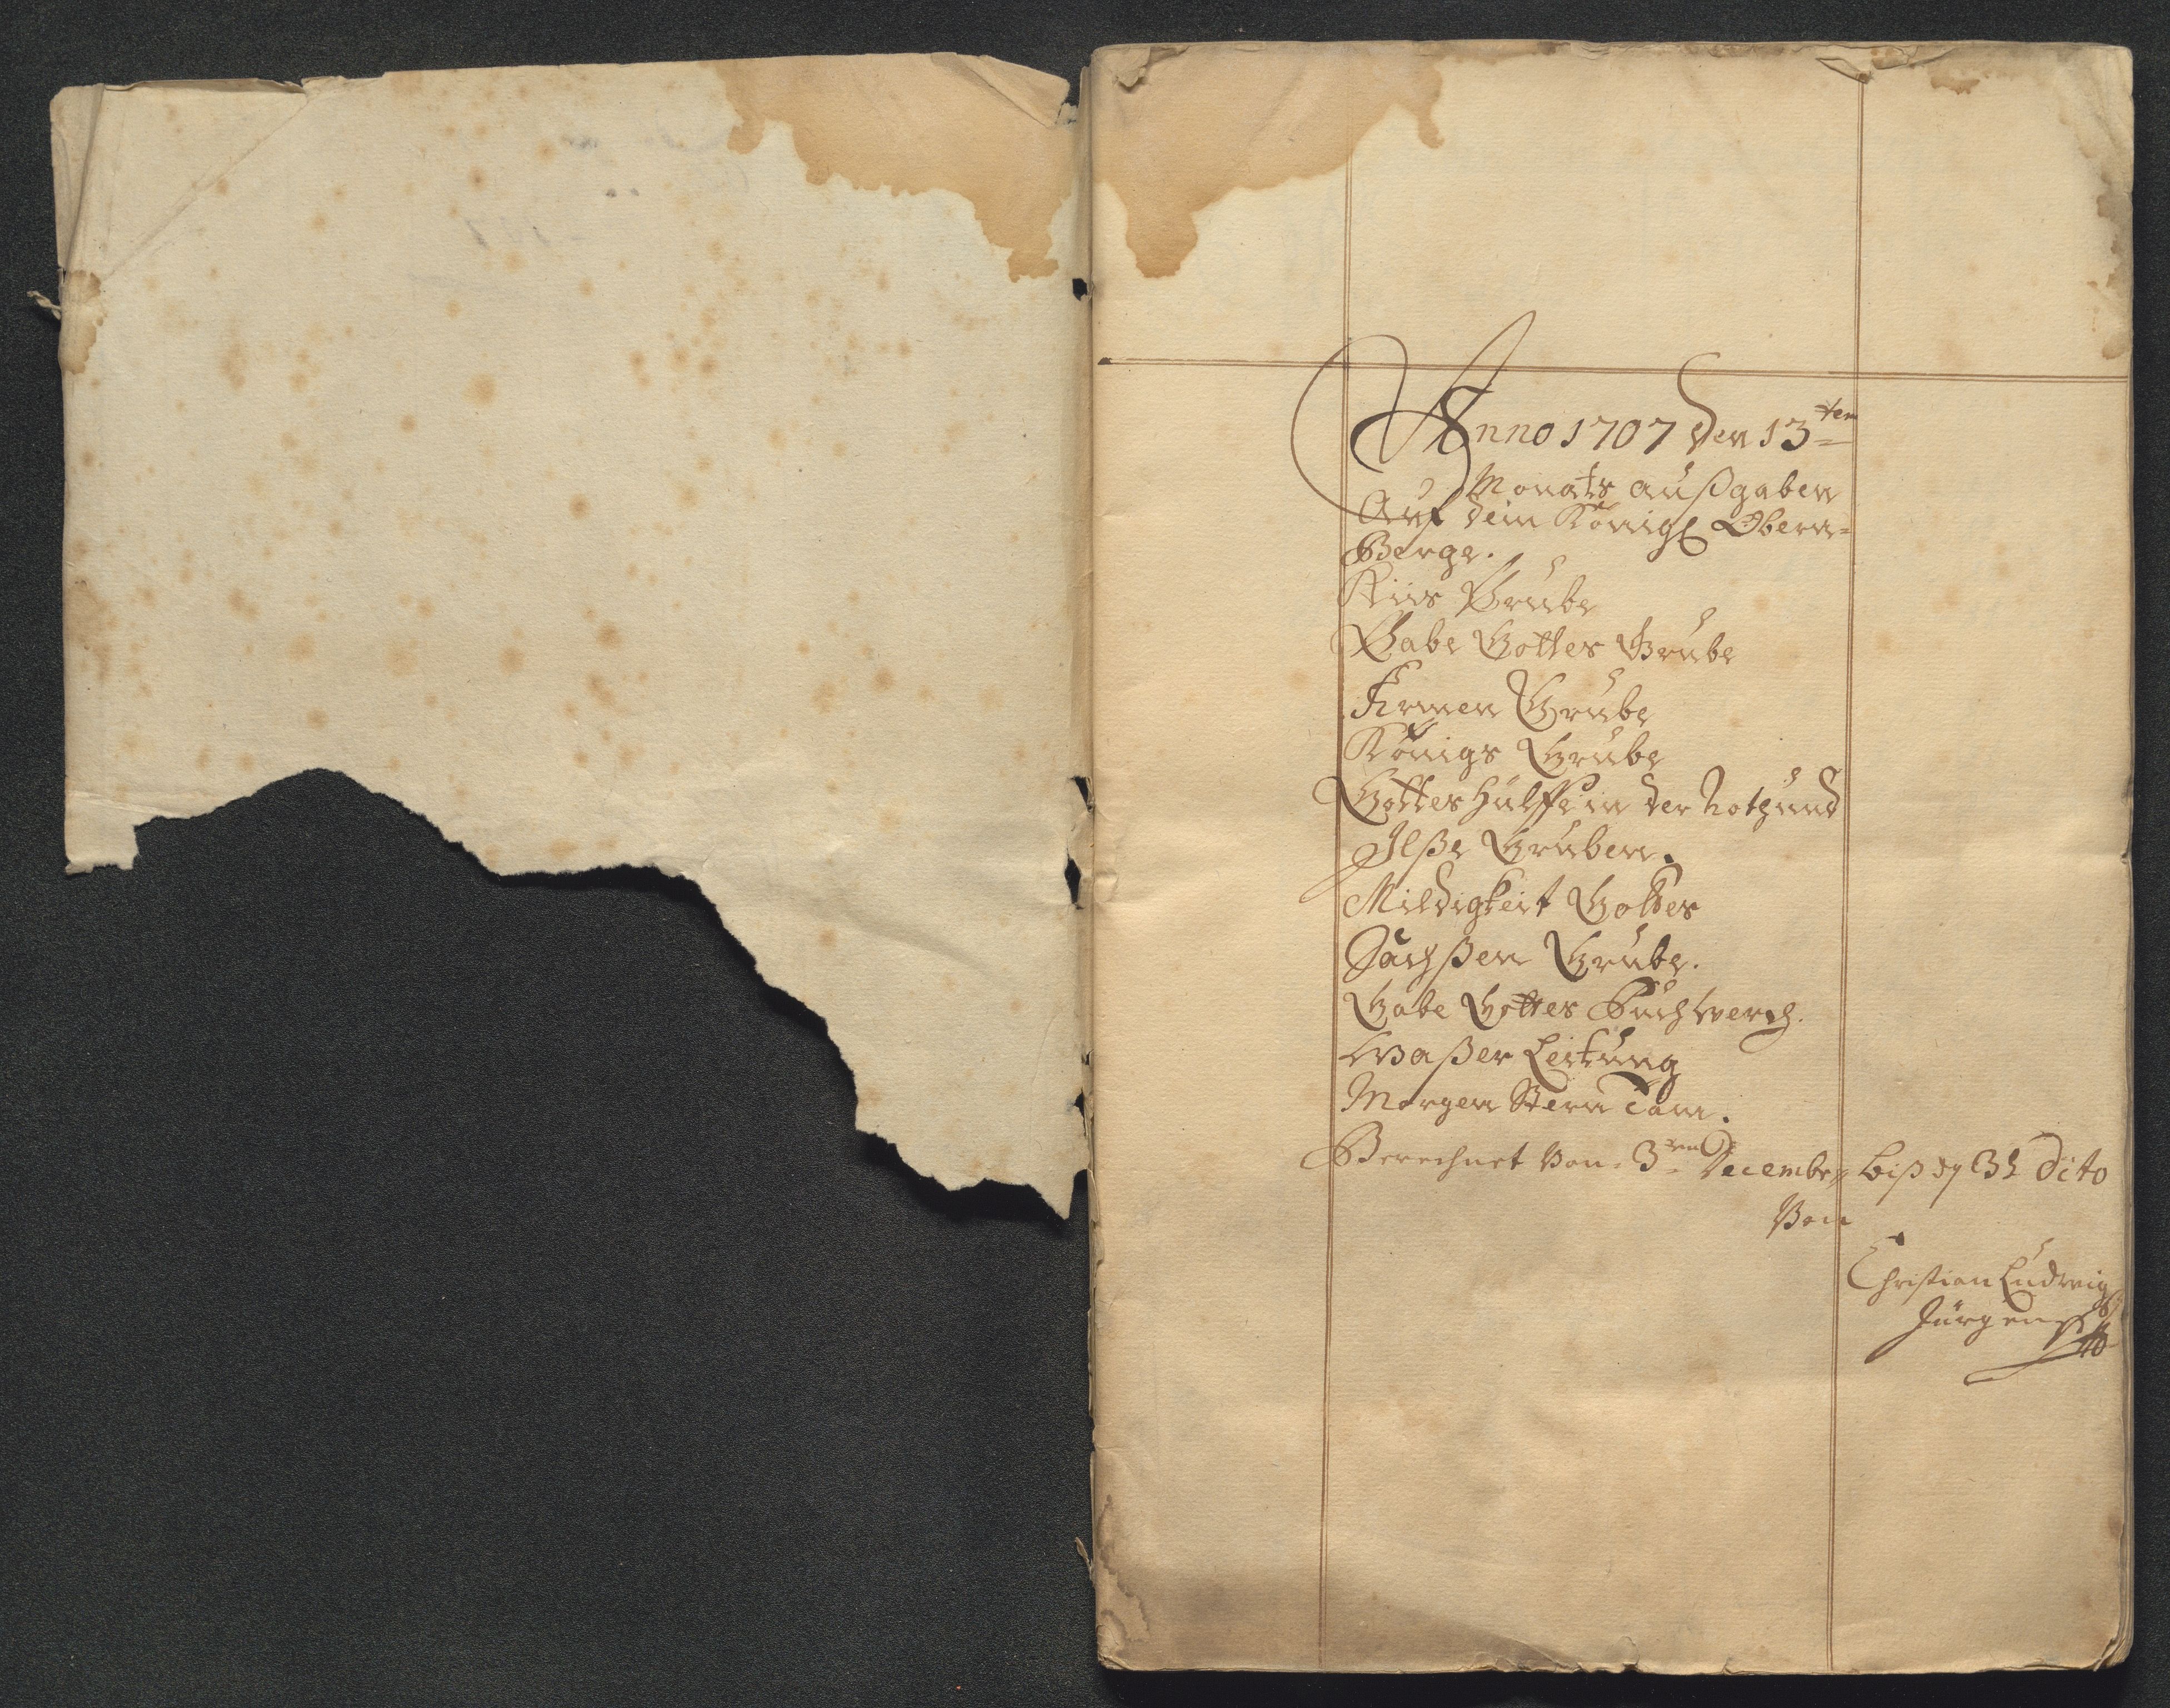 Anno 1707 den 13ten
Monats außgaben
Auf dem Königl Obern-
Berge.
Grube
Gabe Gottes Grube
Armen Grube
Königs Grube
Gottes Hülffe in der Noth und
Ilße Gruben.
Mildigkeit Gottes
Sachßen Grube.
Gabe Gottes Puchwerch.
Waßer Leitung
Morgen Stern Tam.
Berechnet Von 3ten December biß dȳ 31 dito
Von
Christian Ludwig
Jürgens